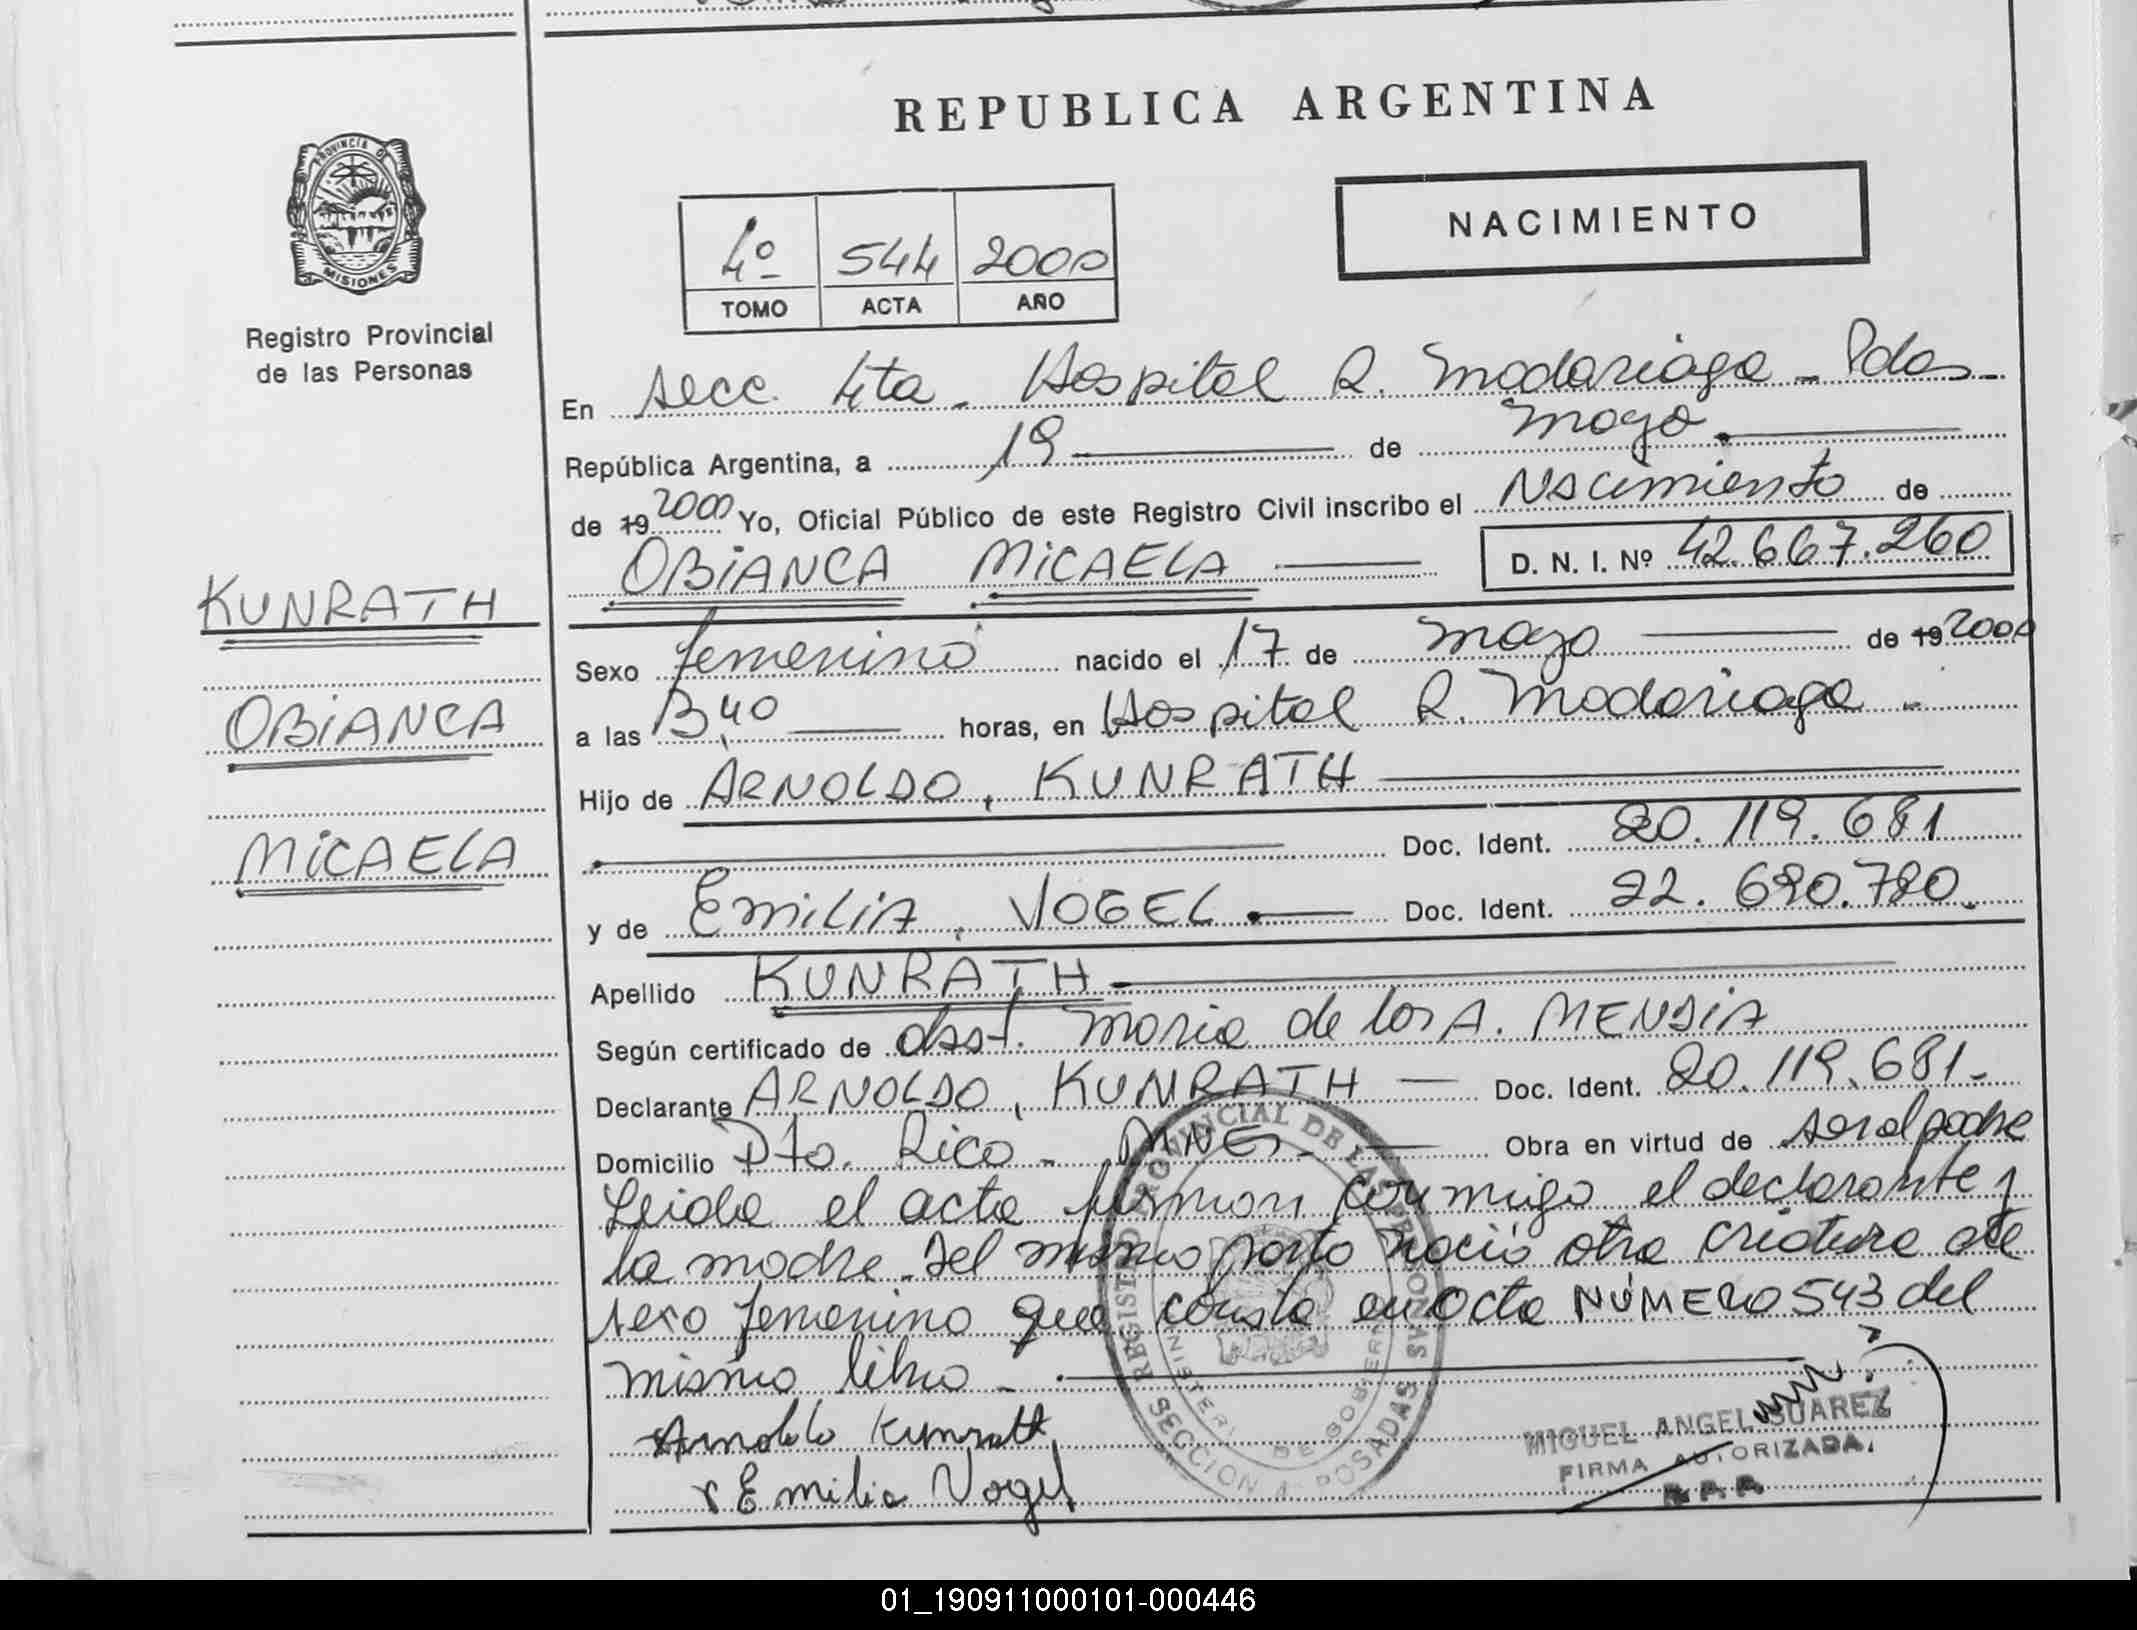 REPUBLICA ARGENTINA
NACIMIENTO
4º 544 2000
TOMO ACTA AÑO
PROVINCIA DE
MISIONES
Registro Provincial
de las Personas
KUNRATH
OBIANCA
MICAELA
En Secc. 4ta - Hospital R. Madariaga - Pdas -
República Argentina, a 19 de mayo
de 19 2000 Yo, Oficial Público de este Registro Civil inscribo el Nacimiento de
OBIANCA MICAELA D. N. I. Nº 42.667.260
Sexo femenino nacido el 17 de mayo de 19 2000
a las 13,40 horas, en Hospital R. Madariaga -
Hijo de ARNOLDO, KUNRATH
Doc. Ident. 20.119.681
y de Emilia, VOGEL Doc. Ident. 22.690.790.
Apellido KUNRATH
Según certificado de obst. Maria de los A. MENDIA
Declarante ARNOLDO, KUNRATH - Doc. Ident. 20.119.681-
Domicilio Pto. Rico - MNES - Obra en virtud de ser el padre
Leida el acta firman conmigo el declarante y
la madre. Del mismo parto nació otra criatura de
sexo femenino que consta en acta NÚMERO 543 del
mismo libro -
Arnoldo Kunrath
Emilia Vogel
REGISTRO PROVINCIAL DE LAS PERSONAS
MINISTERIO DE GOBIERNO
SECCION 4 POSADAS
MIGUEL ANGEL SUAREZ
FIRMA AUTORIZADA
01_190911000101-000446